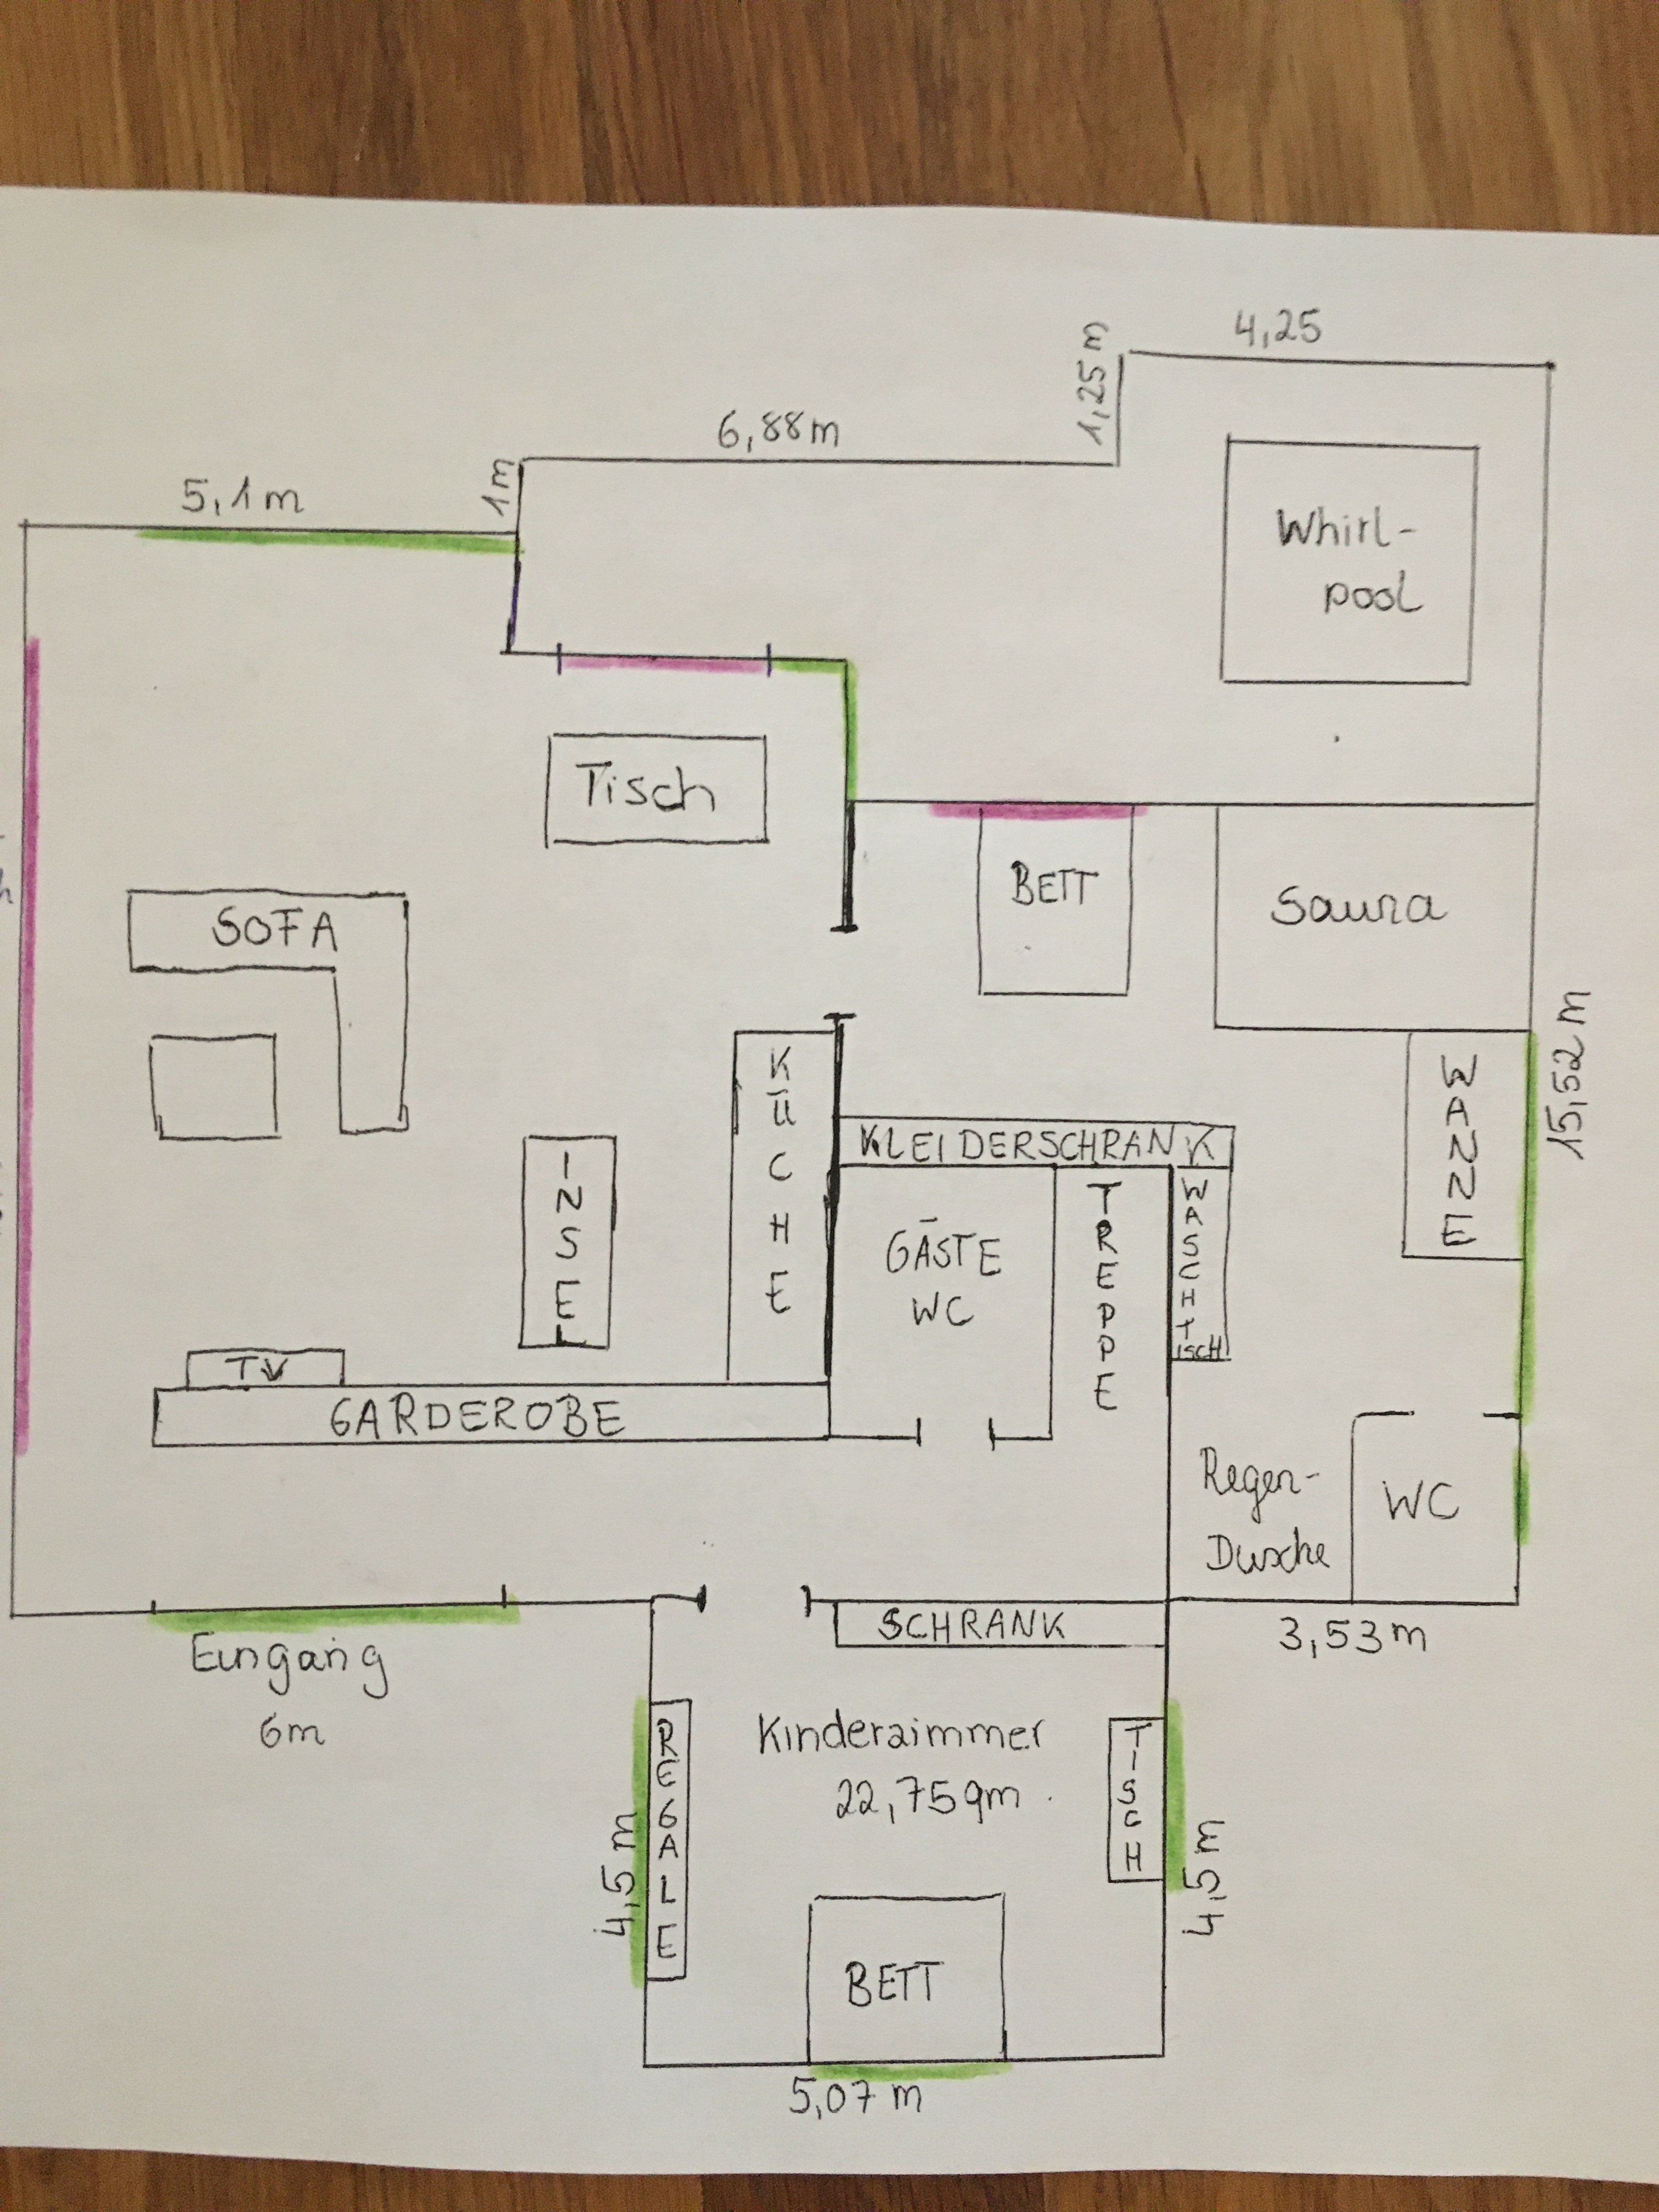 4,25
1,25m
6,88m
1m
5,1m
Whirl-
pool
Tisch
BETT
Sauna
SOFA
KÜCHE
INSEL
KLEIDERSCHRANK
WANNE
15,52 m
GÄSTE
WC
TREPPE
WASCHTISCH
TV
GARDEROBE
Regen-
Dusche
WC
Eingang
6m
SCHRANK
3,53m
REGALE
4,5m
Kinderzimmer
22,759m
TISCH
4,5m
BETT
5,07m